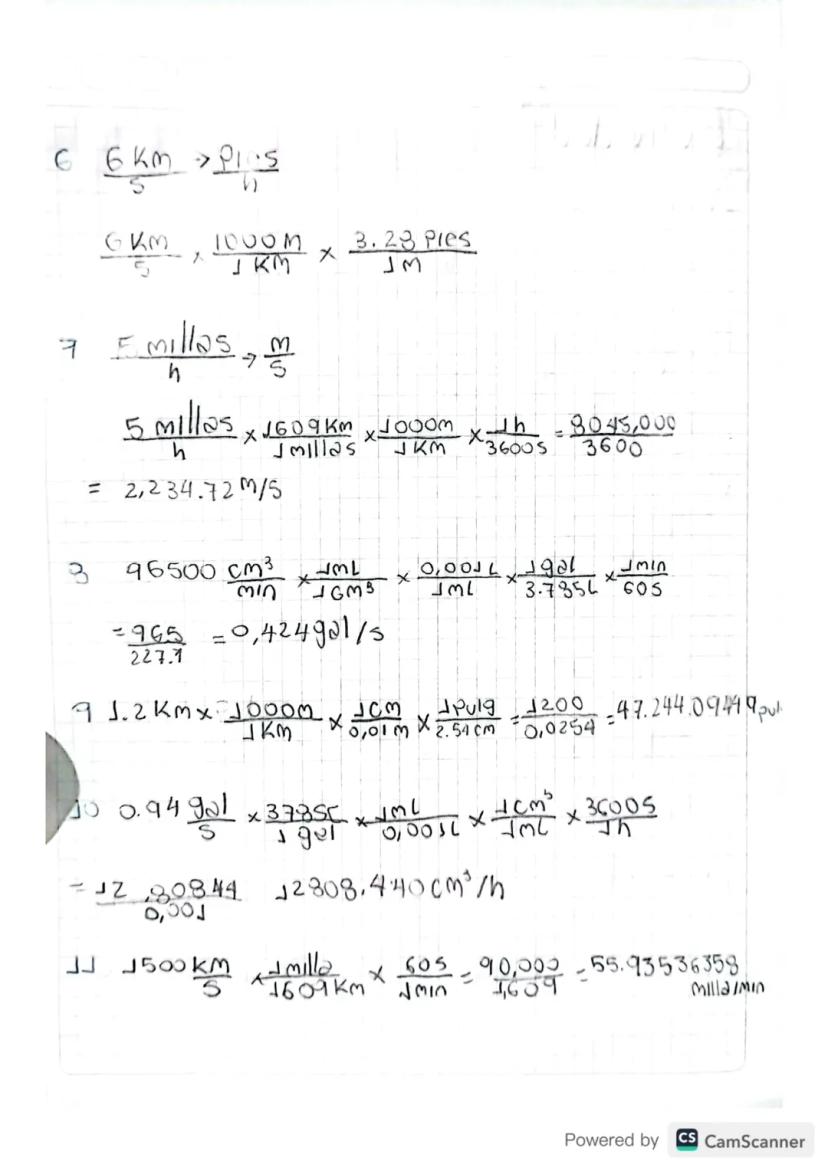 6 6 Km/s → Pies/h
6 Km/s × 1000 M/1 KM × 3.28 Pies/1 M
7 5 millas/h → M/S
5 millas/h × 1609 Km/1 millas × 1000m/1 KM × 1h/3600 s = 8045,000/3600
= 2,234.72 M/S
8 96500 cm³/min × 1mL/1 cm³ × 0,001 L/1 mL × 1 gal/3.785L × 1 min/60 s
= 965/227.1 = 0,424 gal/s
9 1.2 Km × 1000m/1 Km × 1 cm/0,01 m × 1 Pulg/2.54 cm = 1200/0,0254 = 47.244.09449 pul
10 0.94 gal/s × 3785L/1 gal × 1 mL/0,001L × 1 cm³/1 mL × 3600 S/1h
= 12,80844/0,001 12808.440 cm³/h
11 1500 KM/S × 1 milla/1609 Km × 60 s/1 min = 90,000/1,609 = 55.93536358
milla/min
Powered by CS CamScanner